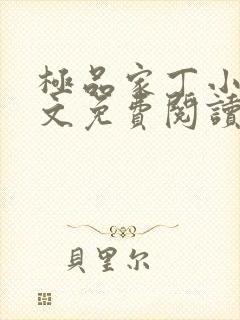 極品家丁小
文免費閱讀
貝里尔